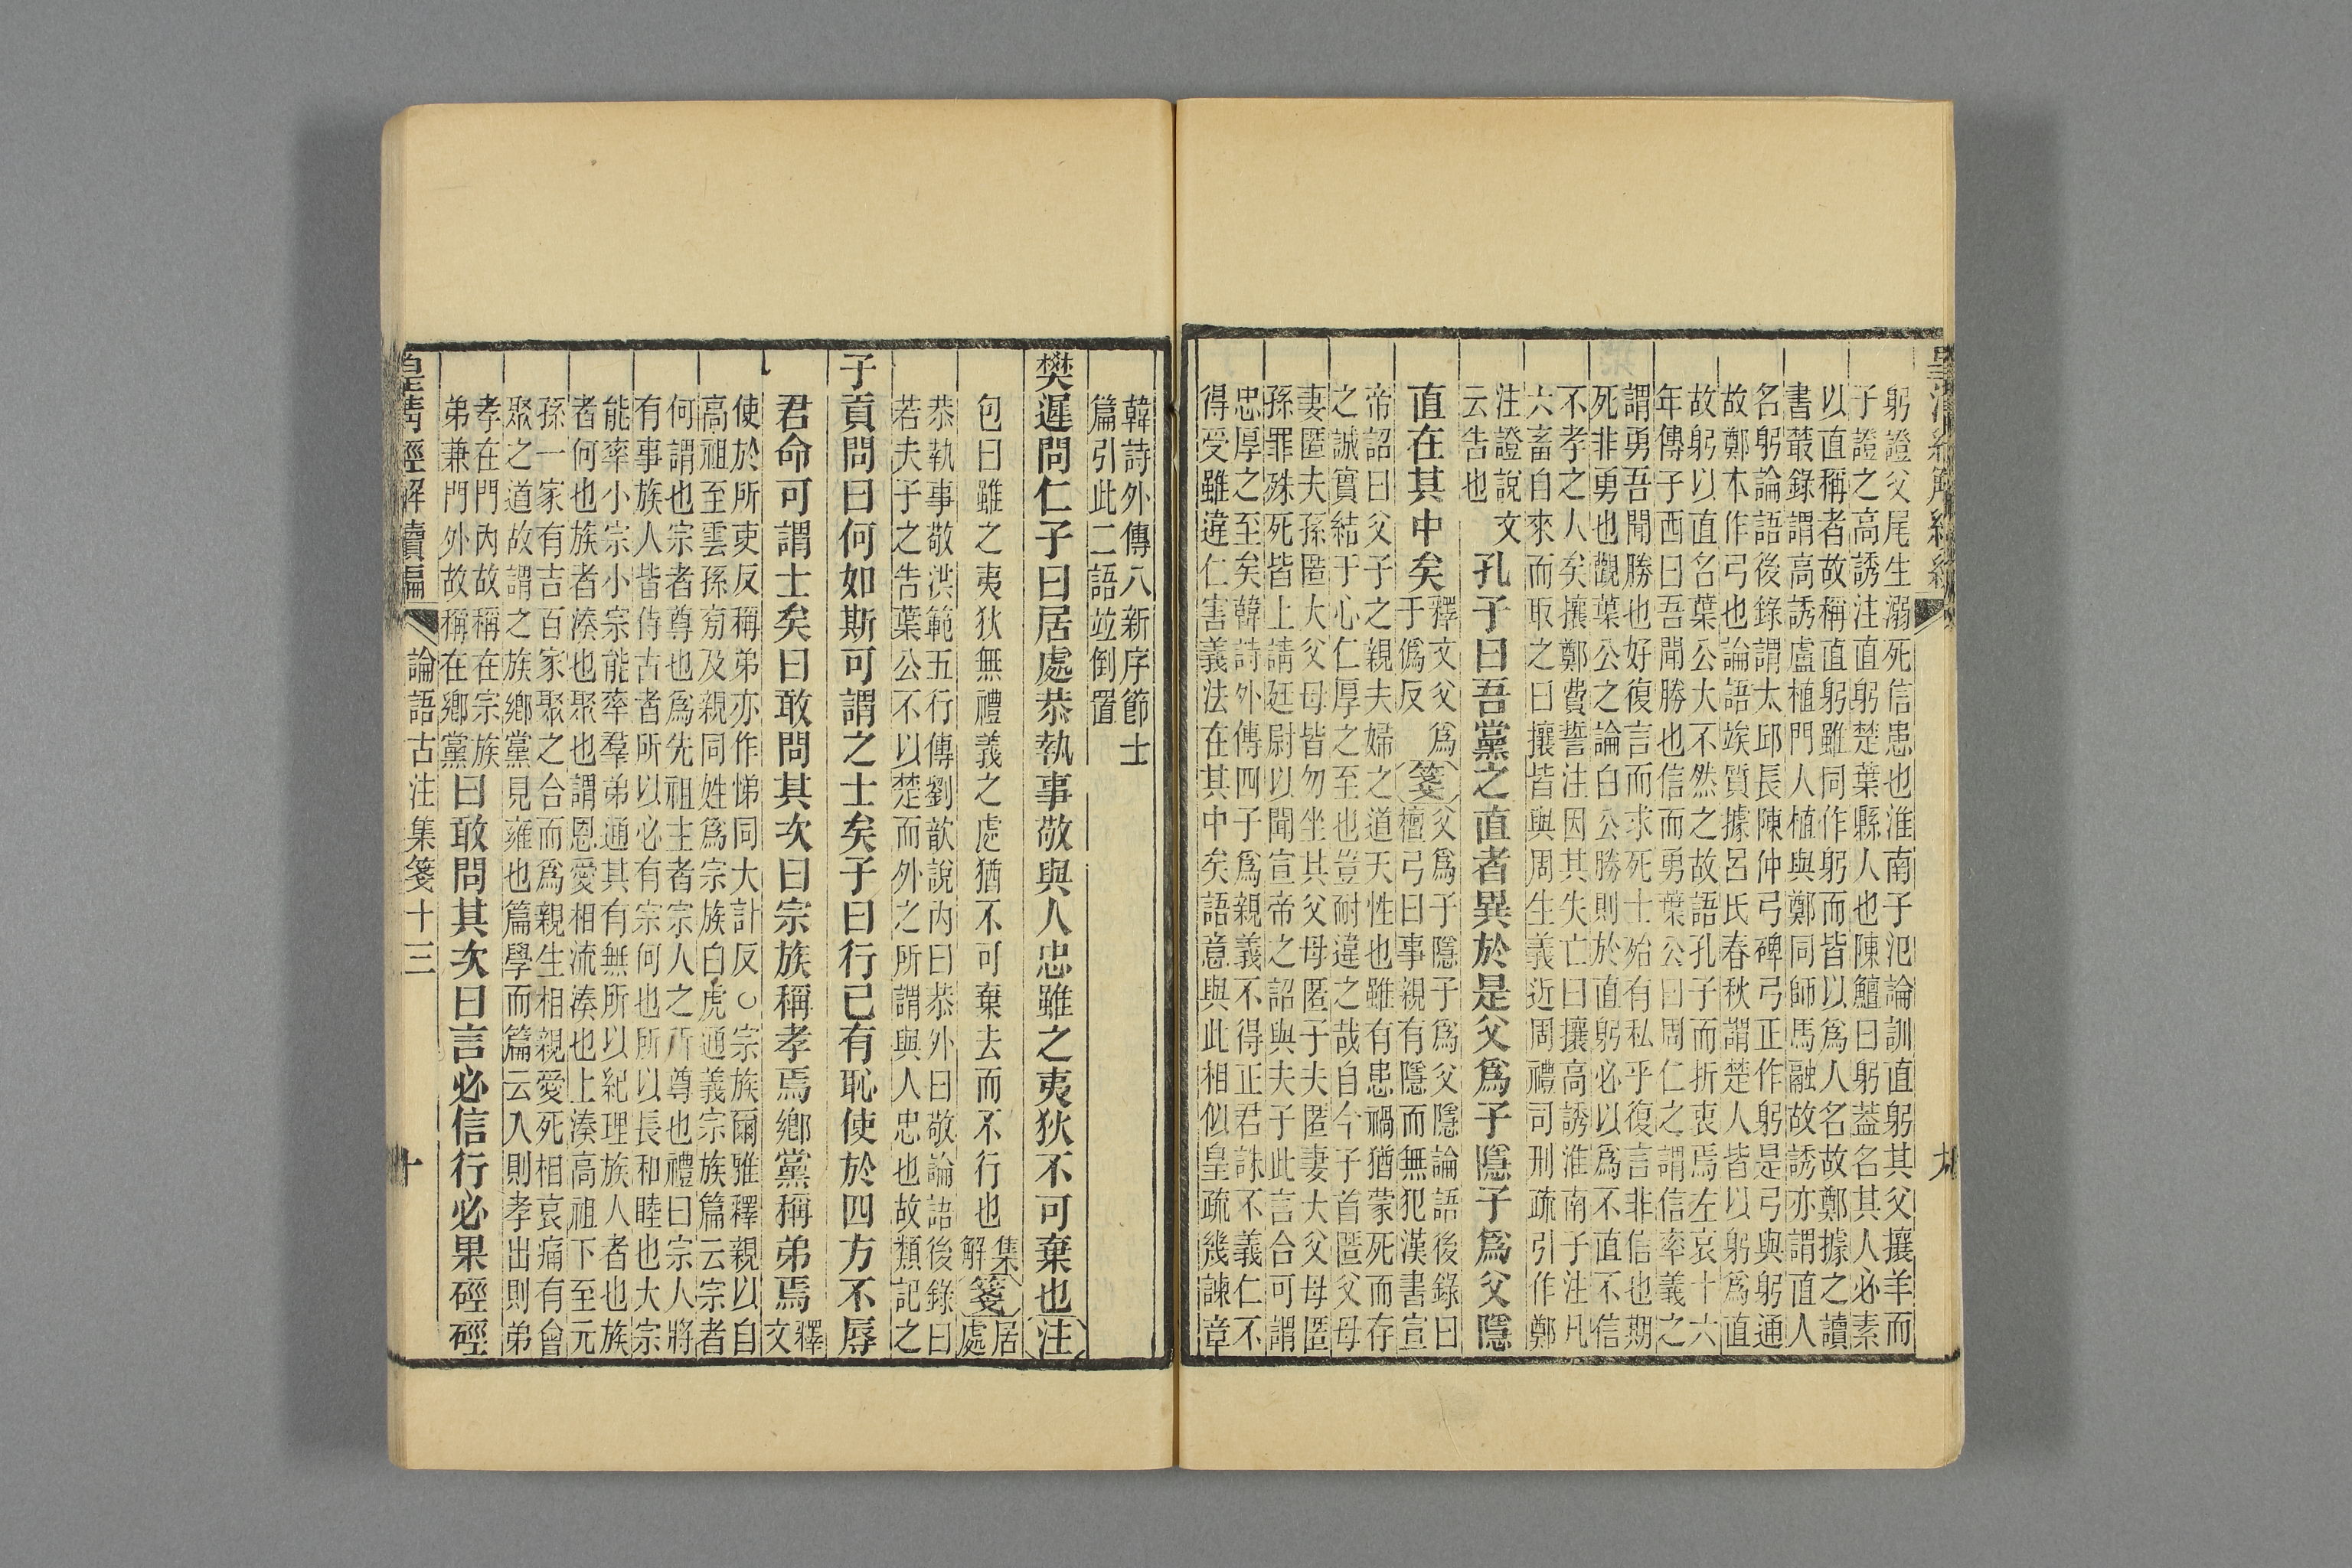 躬證父尾生溺死信患也淮南子氾論訓直躬其父攘羊而
子證之高誘注直躬楚葉縣人也陳鱣曰躬葢名其人必素
以直稱者故稱直躬雖同作躬而皆以爲人名故鄭據之讀
書叢錄謂高誘盧植門人植與鄭同師馬融故誘亦謂直人
名躬論語後錄謂太邱長陳仲弓碑弓正作躬是弓與躬通
故鄭本作弓也論語竢質據呂氏春秋謂楚人皆以躬爲直
故躬以直名葉公大不然之故語孔子而折衷焉左哀十六
年傳子西曰吾聞勝也信而勇葉公曰周仁之謂信率義之
謂勇吾聞勝也好復言而求死士殆有私乎復言非信也期
死非勇也觀葉公之論白公勝則於直躬必以爲不直不信
不孝之人矣攘鄭費誓注因其失亡曰攘高誘淮南子注凡
六畜自來而取之曰攘皆與周生義近周禮司刑疏引作鄭
注證說文
云告也
孔子曰吾黨之直者異於是父爲子隱子爲父隱
直在其中矣
釋文父爲
于僞反
箋
父爲子隱子爲父隱論語後錄曰
檀弓曰事親有隱而無犯漢書宣
帝詔曰父子之親夫婦之道天性也雖有患禍猶蒙死而存
之誠實結于心仁厚之至也豈耐違之哉自今子首匿父母
妻匿夫孫匿大父母皆勿坐其父母匿子夫匿妻大父母匿
孫罪殊死皆上請廷尉以聞宣帝之詔與夫子此言合可謂
忠厚之至矣韓詩外傳四子爲親義不得正君誅不義仁不
得受雖違仁害義法在其中矣語意與此相似皇疏幾諫章
韓詩外傳八新序節士
篇引此二語竝倒置
樊遲問仁子曰居處恭執事敬與人忠雖之夷狄不可棄也注
包曰雖之夷狄無禮義之處猶不可棄去而不行也
集
解
箋
居
處
恭執事敬洪範五行傳劉歆說內曰恭外曰敬論語後錄曰
若夫子之告葉公不以楚而外之所謂與人忠也故類記之
子貢問曰何如斯可謂之士矣子曰行己有恥使於四方不辱
君命可謂士矣曰敢問其次曰宗族稱孝焉鄉黨稱弟焉
釋
文
使於所吏反稱弟亦作悌同大計反○宗族爾雅釋親以自
高祖至雲孫旁及親同姓爲宗族白虎通義宗族篇云宗者
何謂也宗者尊也爲先祖主者宗人之所尊也禮曰宗人將
有事族人皆侍古者所以必有宗何也所以長和睦也大宗
能率小宗小宗能率羣弟通其有無所以紀理族人者也族
者何也族者湊也聚也謂恩愛相流湊也上湊高祖下至元
孫一家有吉百家聚之合而爲親生相親愛死相哀痛有會
聚之道故謂之族鄉黨見雍也篇學而篇云入則孝出則弟
孝在門內故稱在宗族
弟兼門外故稱在鄉黨
曰敢問其次曰言必信行必果硜硜
皇清經解續編
論語古注集箋十三
十